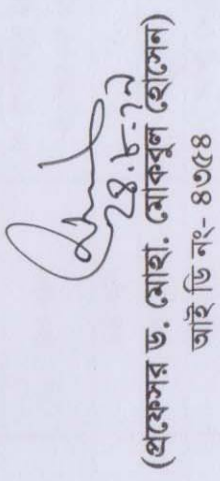 ২৪.৮-১১
(প্রফেসর ড. মোহা. মোকবুল হোসেন)
আই ডি নং- ৪৩৫৪